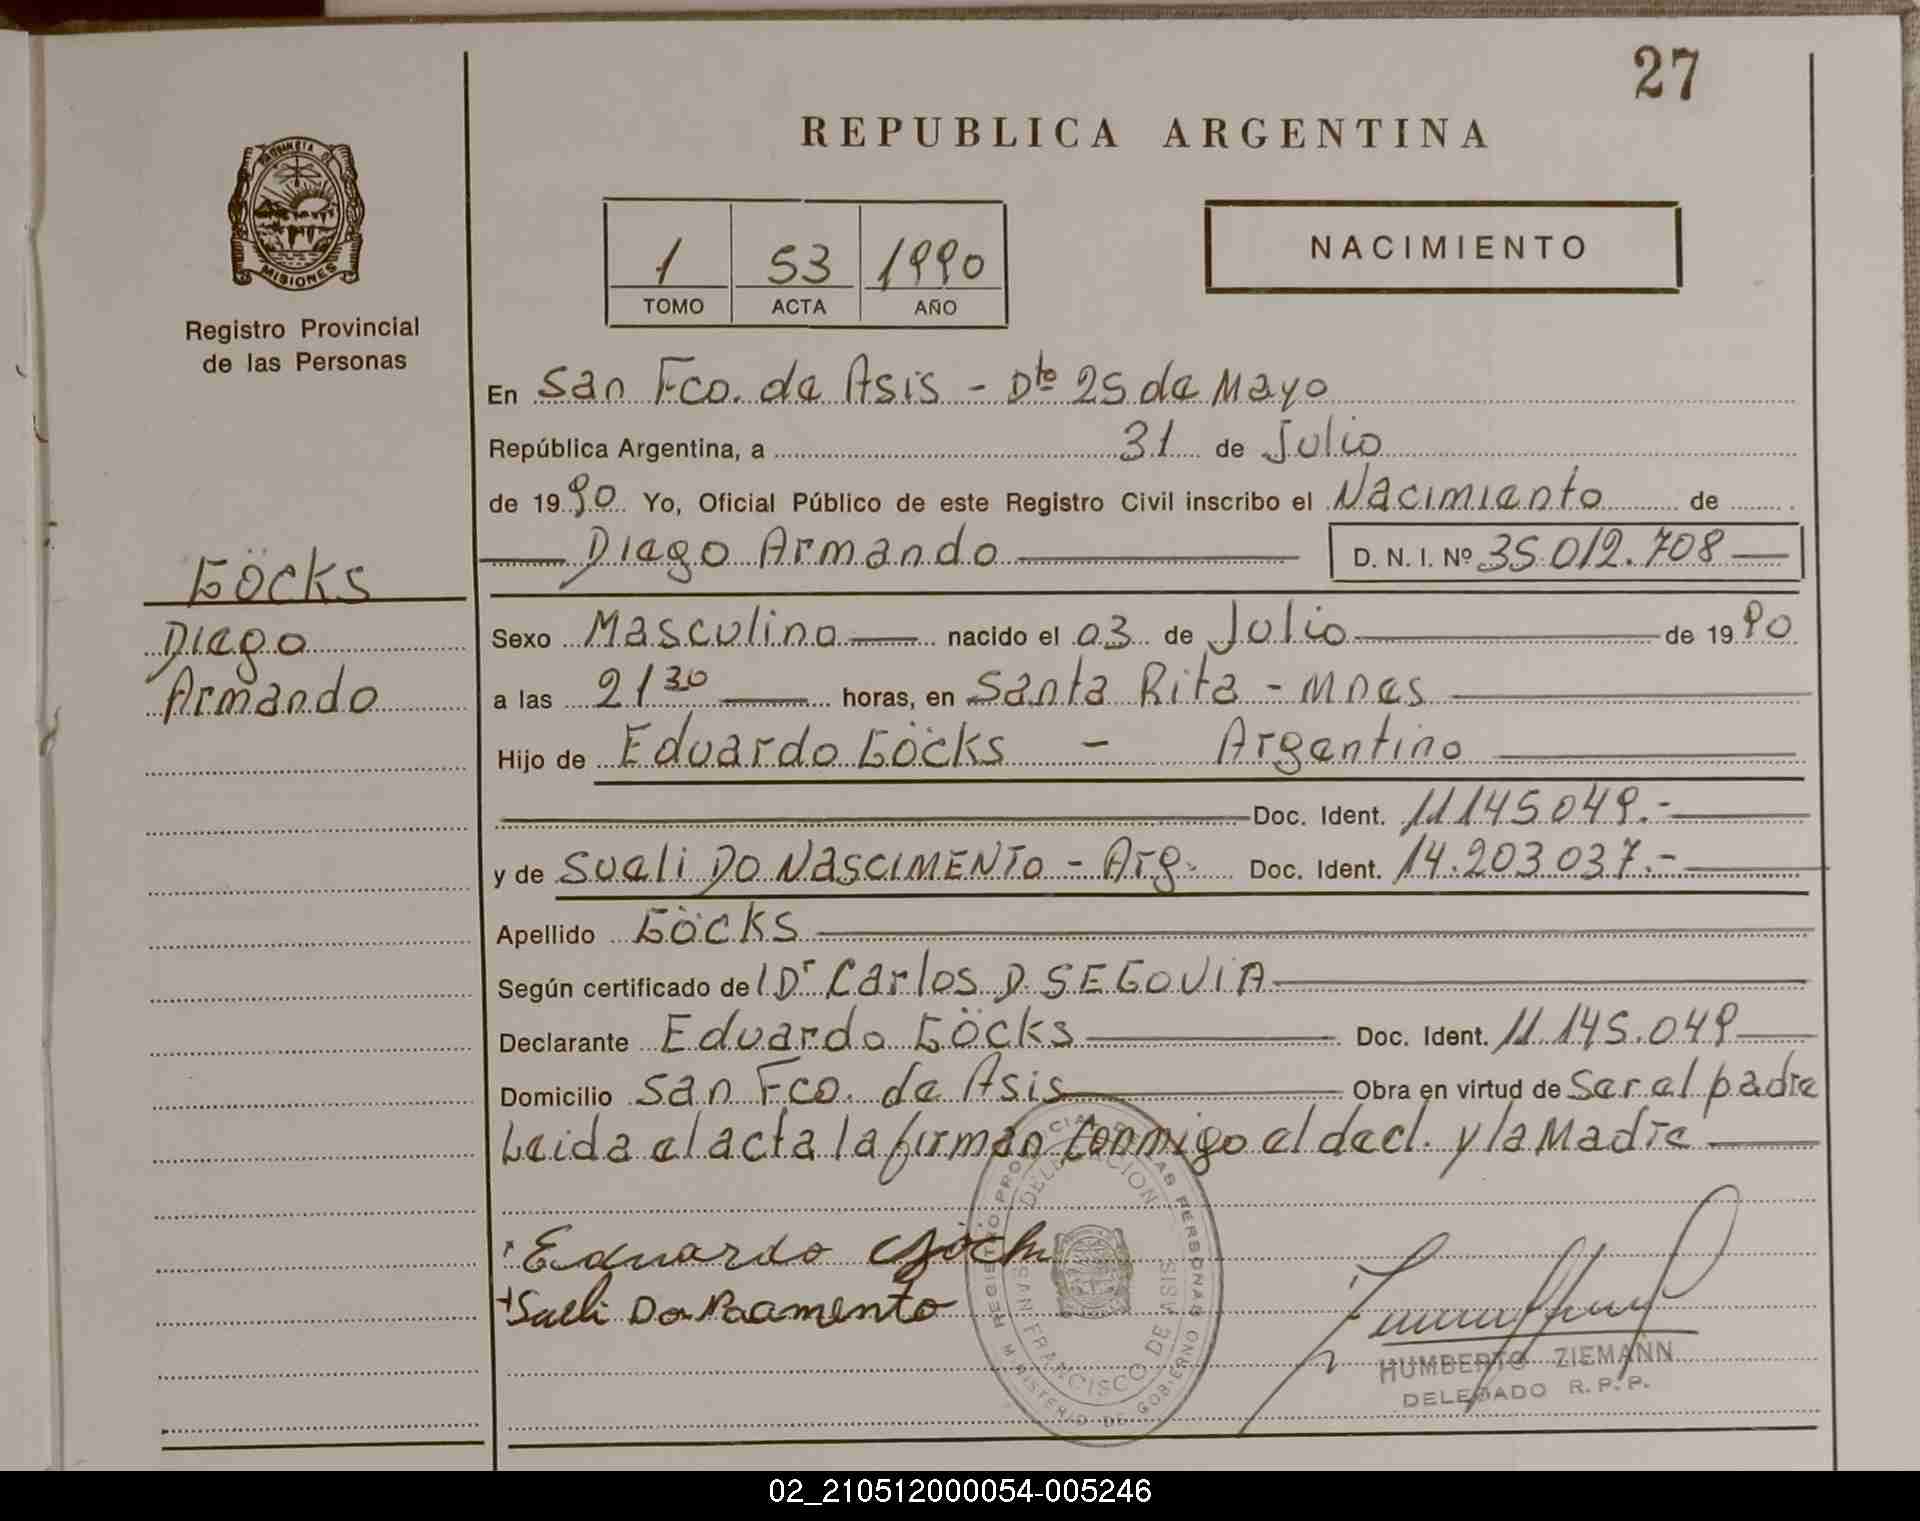 27
REPUBLICA ARGENTINA
PROVINCIA DE
MISIONES
Registro Provincial
de las Personas
1 53 1990
TOMO ACTA AÑO
NACIMIENTO
En San Fco. de Asis - Dto 25 de Mayo
República Argentina, a 31 de Julio
de 1990 Yo, Oficial Público de este Registro Civil inscribo el Nacimiento de
Diego Armando D. N. I. Nº 35.012.708
Göcks
Diego
Armando
Sexo Masculino nacido el 03 de Julio de 1990
a las 21 30 horas, en Santa Rita - Mnes
Hijo de Eduardo Göcks - Argentino
Doc. Ident. 11145049.-
y de Sueli Do NASCIMENTO - Arg. Doc. Ident. 14.203.037.-
Apellido Göcks
Según certificado de l Dr Carlos D. SEGOVIA
Declarante Eduardo Göcks Doc. Ident. 11.145.049
Domicilio San Fco. de Asis Obra en virtud de Ser el padre
Leida el acta la firman Conmigo el decl. y la Madre
Eduardo Göcks
Sueli Do
REGISTRO PROVINCIAL DE LAS PERSONAS
DELEGACION
SAN FRANCISCO DE ASIS
MINISTERIO DE GOBIERNO
HUMBERTO ZIEMANN
DELEGADO R.P.P.
02_210512000054-005246